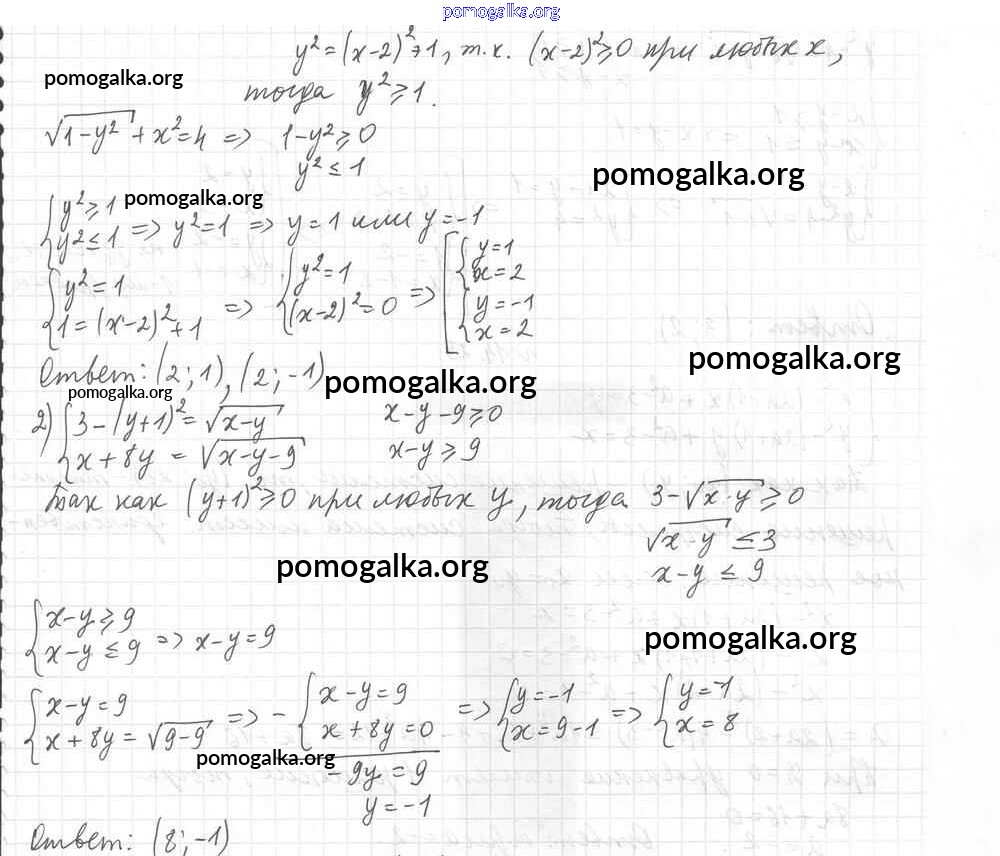 pomogalka.org
y² = (x-2)² + 1, т.к. (x-2)² ≥ 0 при любых x,
pomogalka.org
тогда y² ≥ 1.
√(1-y²) + x² = 4 => 1-y² ≥ 0
y² ≤ 1
pomogalka.org
{ y² ≥ 1 pomogalka.org
{ y² ≤ 1 => y² = 1 => y = 1 или y = -1
{ y² = 1
{ 1 = (x-2)² + 1 => { y² = 1
{ (x-2)² = 0 => [ { y = 1
{ x = 2
{ y = -1
{ x = 2
pomogalka.org
Ответ: (2; 1), (2; -1)
pomogalka.org
pomogalka.org
2) { 3 - (y+1)² = √(x-y) x-y-9 ≥ 0
{ x + 8y = √(x-y-9) x-y ≥ 9
Так как (y+1)² ≥ 0 при любых y, тогда 3 - √(x-y) ≥ 0
√(x-y) ≤ 3
pomogalka.org
x-y ≤ 9
{ x-y ≥ 9
{ x-y ≤ 9 => x-y = 9
pomogalka.org
{ x-y = 9
{ x + 8y = √(9-9) => - { x-y = 9
{ x + 8y = 0 => { y = -1
{ x = 9-1 => { y = -1
{ x = 8
pomogalka.org
-9y = 9
y = -1
Ответ: (8; -1)